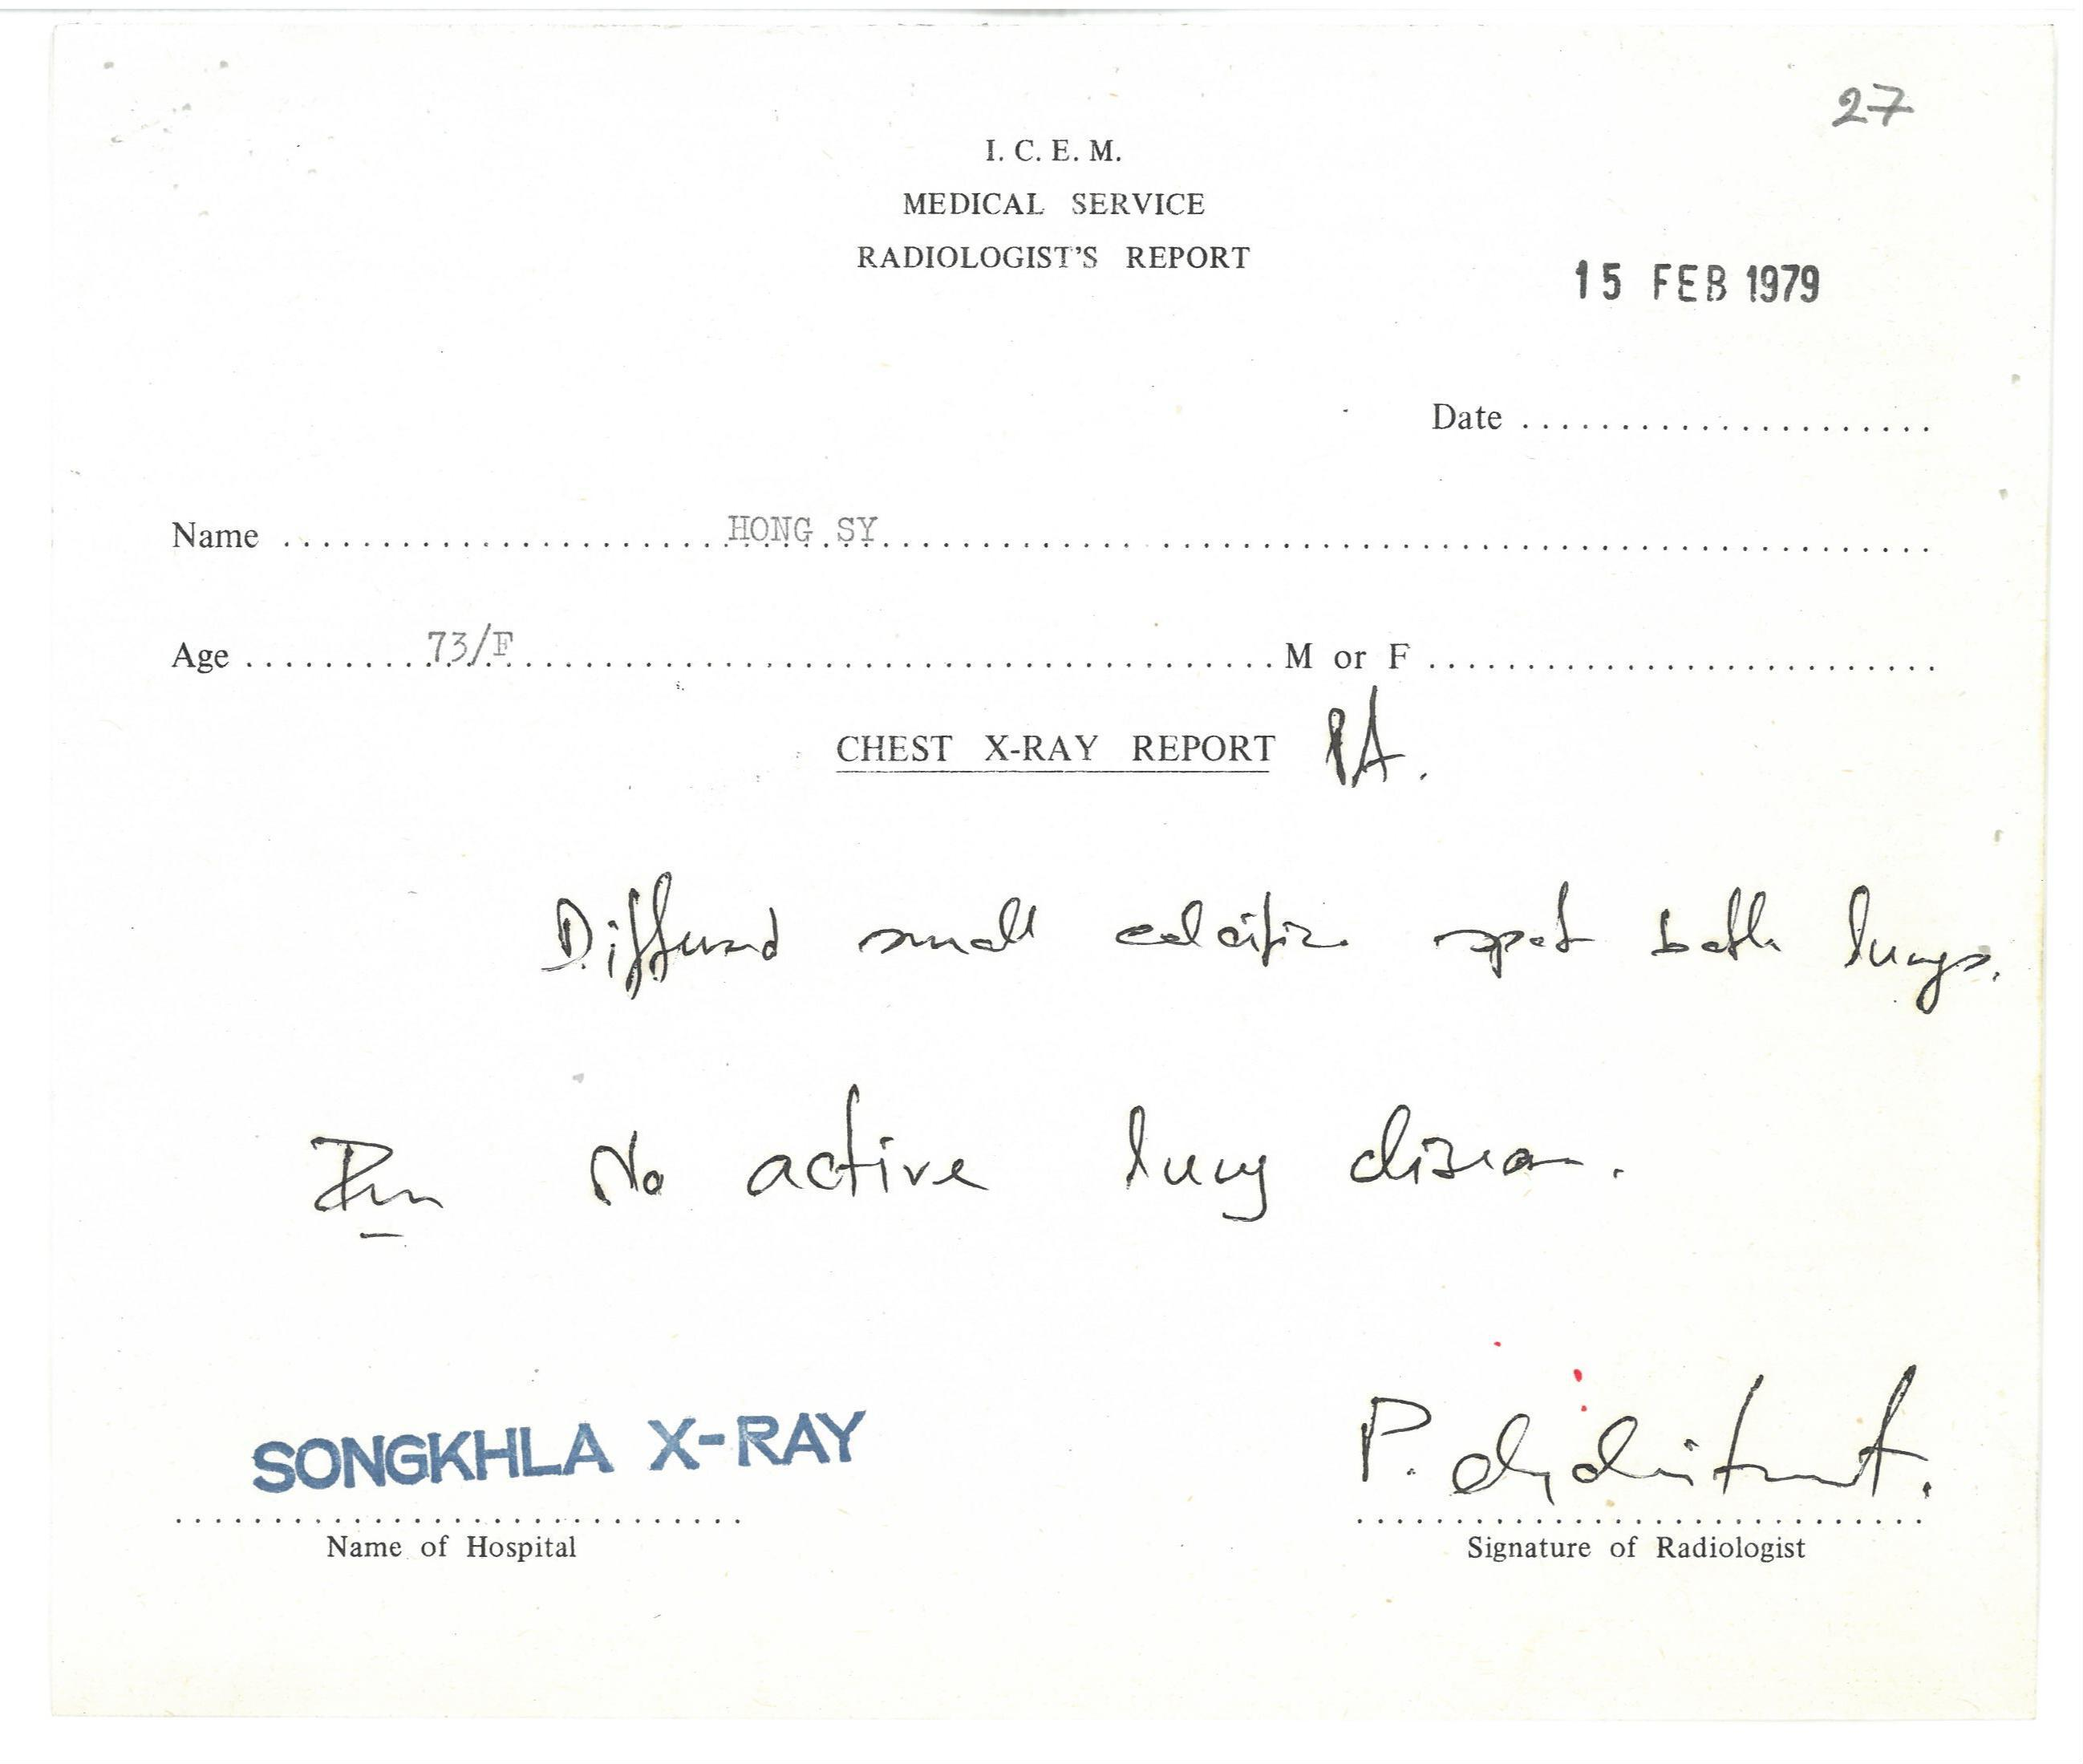 27
I. C. E. M.
MEDICAL SERVICE
RADIOLOGIST'S REPORT
15 FEB 1979
Date
Name HONG SY
Age 73/F M or F
CHEST X-RAY REPORT PA.
Diffused small calcific spot both lungs.
Imp No active lung disease.
SONGKHLA X-RAY
Name of Hospital
P.
Signature of Radiologist